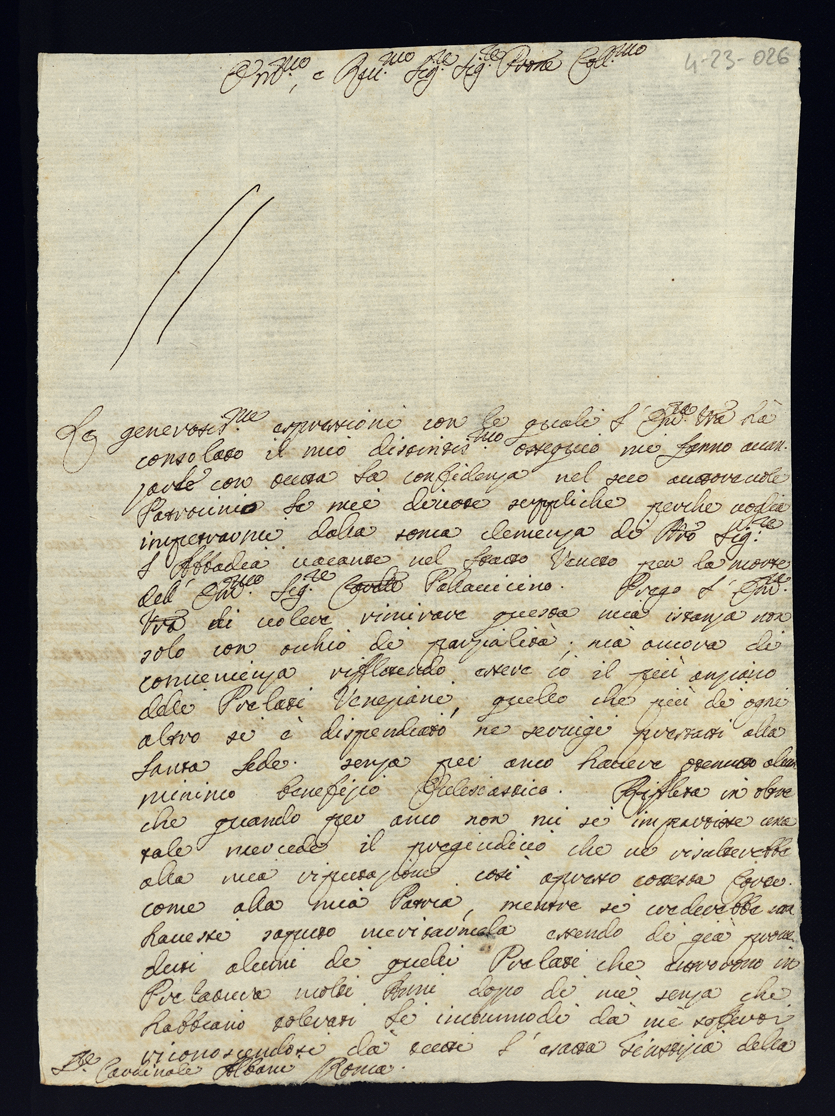 4-23-026
Em.mo, e Rev.mo Sig.re Sig.re Prone Coll.mo
Le generosis.me espressioni con le quali l' Em.za Vra hà
consolato il mio distintis.mo ossequio mi fanno avan-
zare con tutta la confidenza nel suo autorevole
Patrocinio le mie divote suppliche perche voglia
impetrarmi dalla somma clemenza di Nro Sig.re
l' Abbadia vacante nel Stato Veneto per la morte
dell' Em.mo Sig.re Pallavicino. Prego l' Em.za
Vra di volere rimirare questa mia istanza non
solo con ochio di parzialità, mà ancora di
convenienza riflettendo essere io il più anziano
delli Prelati Veneziani, quello che più di ogni
altro si è dispendiato, ne servigi prestati alla
Santa Sede. senza per anco havere ottenuto alcun
minimo benefizio Eclesiastico. Rifletta in oltre
che quando per anco non mi se impartisse una
tale mercede il pregiudicio che ne risulterebbe
alla mia riputazione così apresso cotesta Corte.
come alla mia Patria, mentre si crederebbe non
havesse saputo meritarmela essendo di già prove-
duti alcuni di quelli Prelati che entrorono in
Prelatura molti Anni dopo di me senza che
habbiano tolerati le incommodi dà me sofferti
riconoscendosi dà tutti l' esatta Giustizia della
S.re Cardinale Albani Roma.